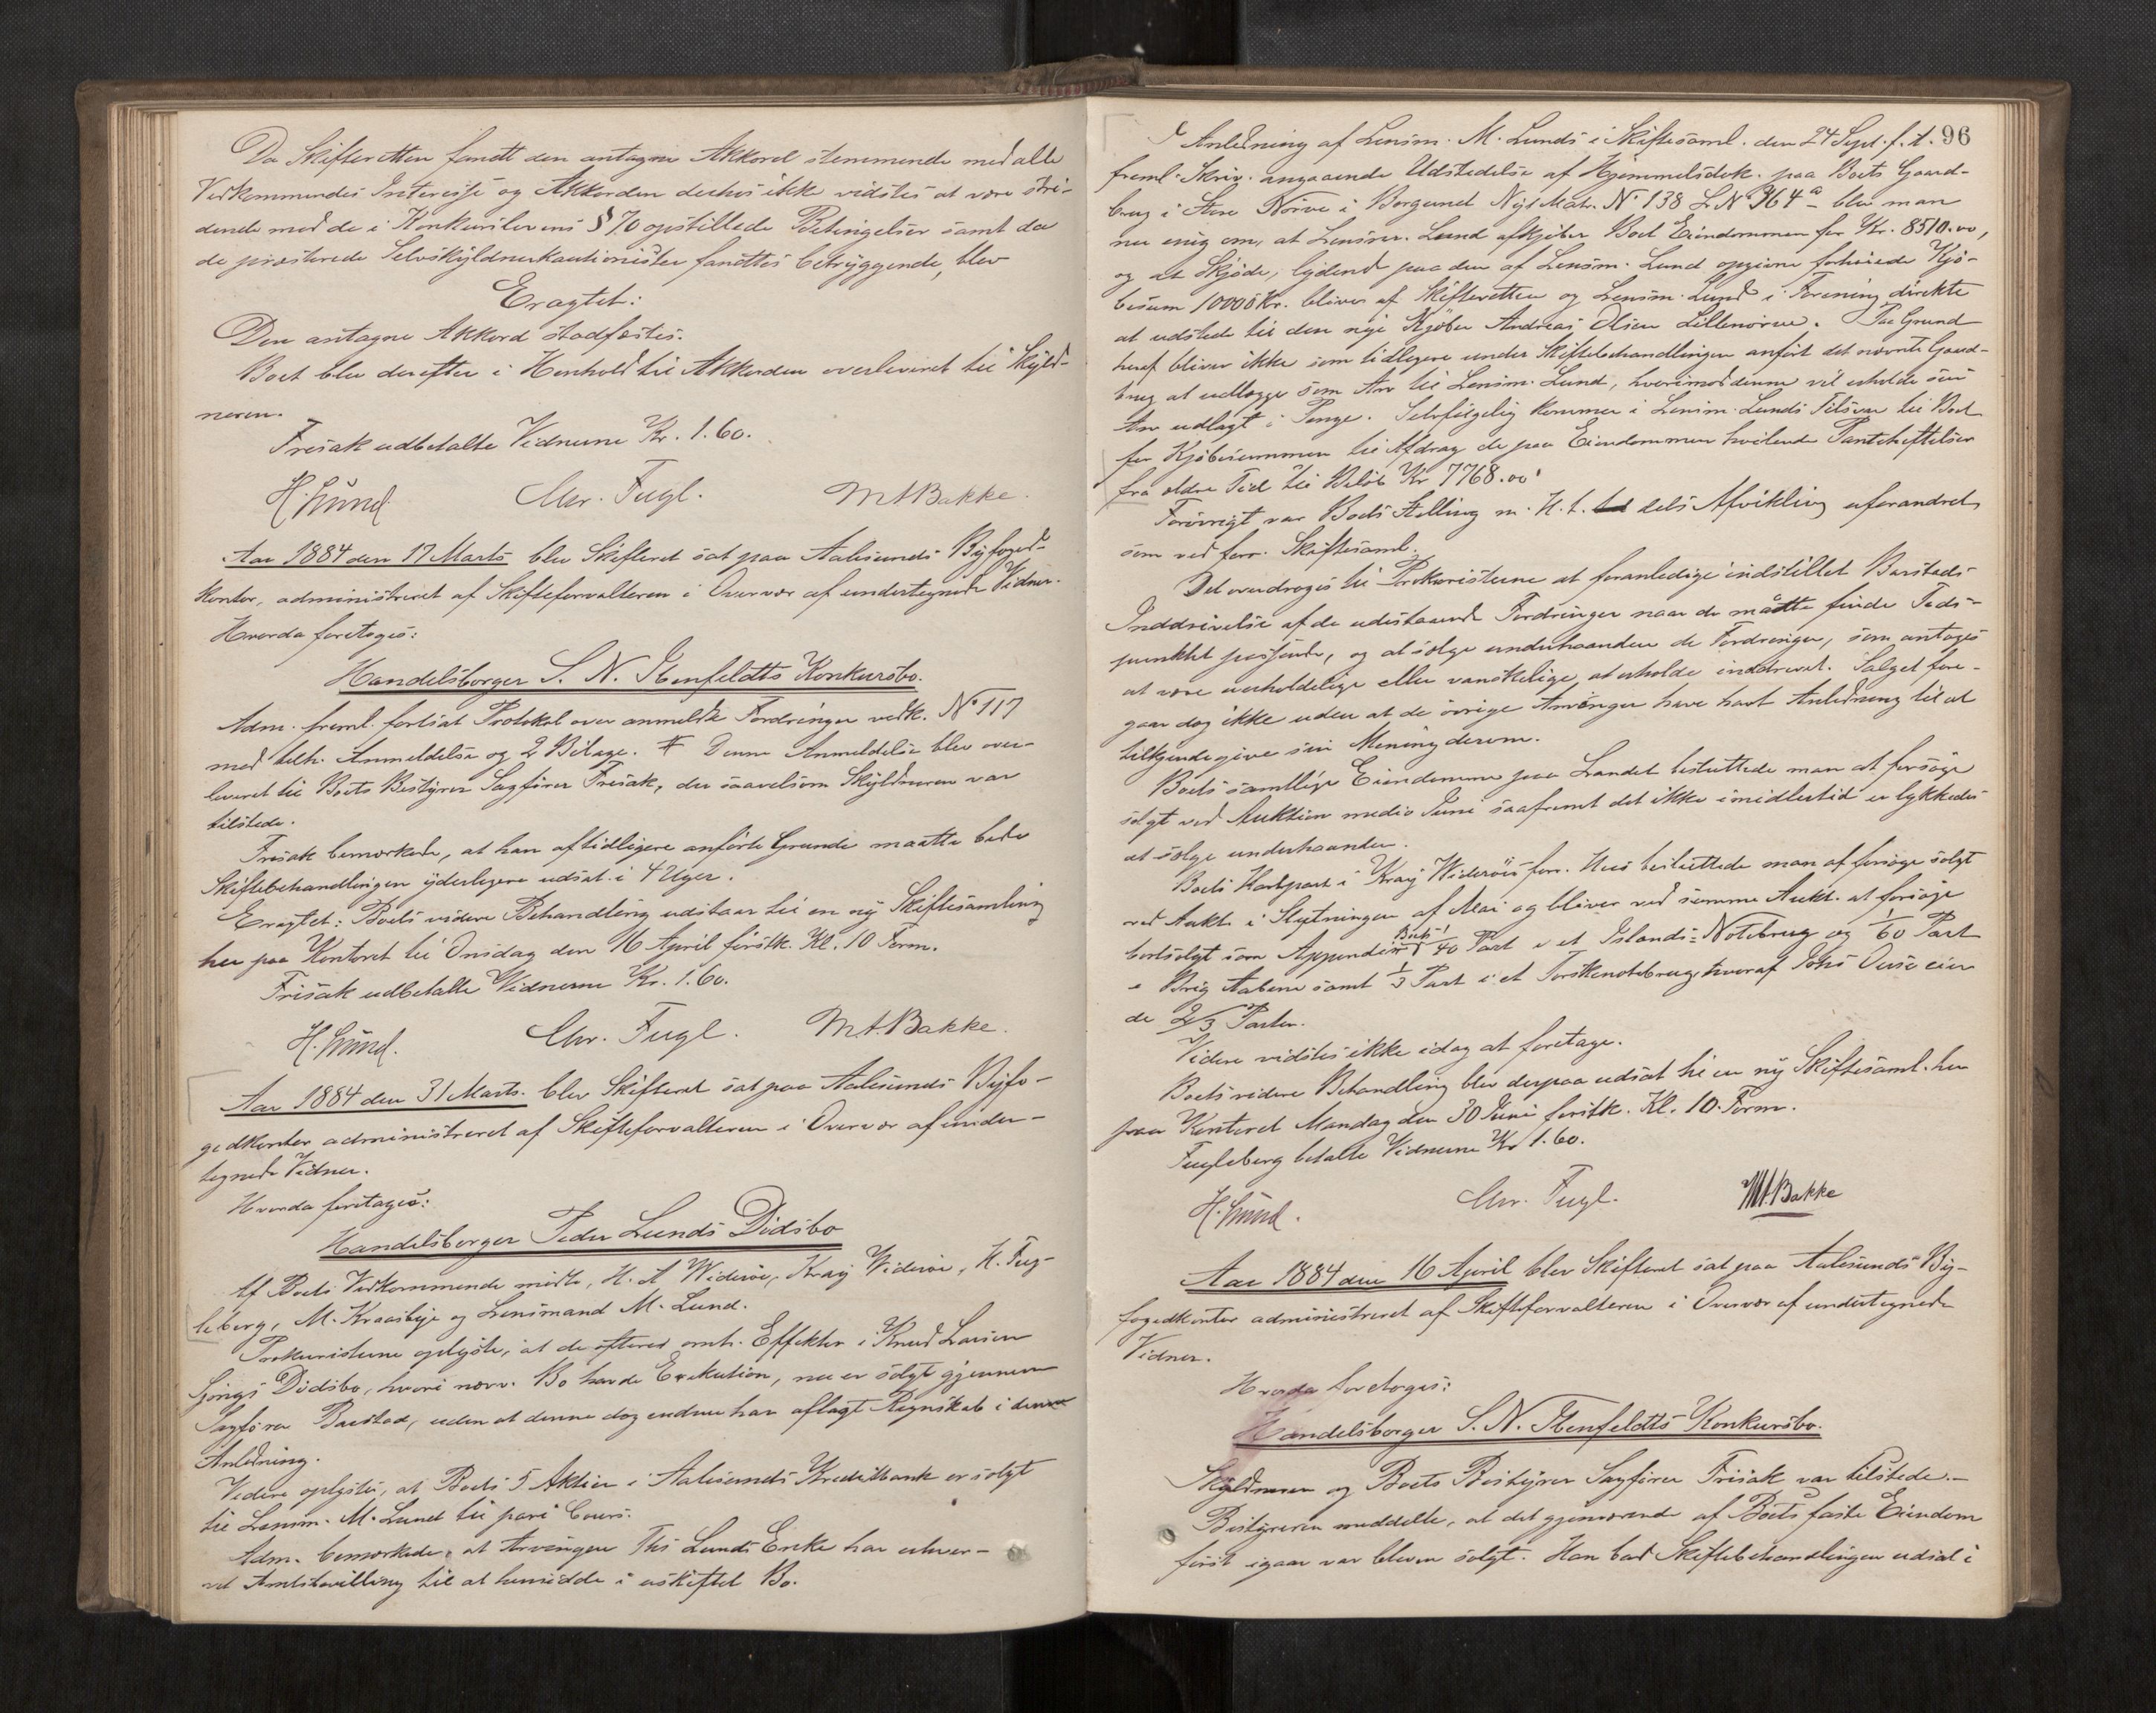 Da Skifteretten fandt den antagne Akkord stemmende med alle
Vedkommendes Interesse og Akkorden derhos ikke vidstes at være stri-
dende mod de i Konkurslovens § 70 opstillede Betingelser samt da
de præsterede Selvskyldnerkautionister fandtes betryggende, blev
Eragtet:
Den antagne Akkord stadfæstes.
Boet blev derefter i Henhold til Akkorden overleveret til Skyld-
neren.
Frisak udbetalte Vidnerne Kr. 1.60.
H. Lund. Chr. Fugl. M A Bakke.
Aar 1884 den 17 Marts blev Skifteret sat paa Aalesunds Byfoged-
kontor, administreret af Skifteforvalteren i Overvær af undertegnede Vidner.
Hvorda foretoges:
Handelsborger S. N. Stenfeldts Konkursbo.
Adm. freml. fortsat Protokol over anmeldte Fordringer vedk. No 117
med tilh. Anmeldelse og 2 Bilage. Denne Anmeldelse blev over-
leveret til Boets Bestyrer Sagfører Frisak, der saavelsom Skyldneren var
tilstede.
Frisak bemærkede, at han af tidligere anførte Grunde maatte bede
Skiftebehandlingen yderligere udsat i 4 Uger.
Eragtet: Boets videre Behandling udstaar til en ny Skiftesamling
her paa Kontoret til Onsdag den 16 April førstk. Kl. 10 Form.
Frisak udbetalte Vidnerne Kr. 1.60.
H. Lund. Chr. Fugl. M. A. Bakke.
Aar 1884 den 31 Marts. blev Skifteret sat paa Aalesunds Byfo-
gedkontor administreret af Skifteforvalteren i Overvær af under-
tegnede Vidner.
Hvorda foretages:
Handelsborger Peder Lunds Dødsbo
Af Boets Vedkommende mødte, H. A Widerøe, Krag Widerøe, H. Fug-
leberg, M. Kraasbye og Lensmand M. Lund.
Prokuristerne oplyste, at de efterod omh. Effekter i Knud Larsen
Gjørigs Dødsbo, hvori nærv. Bo havde Exekution, nu er solgt gjennem
Sagfører Barstad, uden at denne dog endnu har aflagt Regnskab i denne
Anledning.
Videre oplystes, at Boets 5 Aktier i Aalesunds Kreditbank er solgt
til Lensm. M. Lund til pari Cours.
Adm. bemærkede, at Arvingen Ths Lunds Enke har erhver-
vet Amtsbevilling til at hensidde i uskiftet Bo.
96
I Anledning af Lensm. M. Lunds i Skiftesaml. den 24 Sept. f. A.
freml. Skriv. angaaende Udstedelse af Hjemmelsdok. paa Boets Gaard-
brug i Store Nørve i Borgund Nye Matr. No 138 LNo 364 a blev man
nu enig om, at Lensm. Lund afkjøber Boet Eiendommen for Kr. 8510.00,
og at Skjøde, lydende paa den af Lensm. Lund opgivne forhøiede Kjø-
besum 10000 Kr. bliver af Skifteretten og Lensm. Lund i Forening direkte
at udstede til den nye Kjøber Andreas Olsen Lillenørve. Paa Grund
heraf bliver ikke som tidligere under Skiftebehandlingen anført det nævnte Gaard-
brug at udlægge som Arv til Lensm. Lund, hvorimod denne vil erholde sin
Arv udlagt i Penge. Selvfølgelig kommer i Lensm. Lunds Tilsvar til Boet
for Kjøbesummen til Afdrag de paa Eiendommen hvilende Pantehæftelser
fra ældre Tid til Beløb Kr 7768.00.
Forøvrigt var Boets Stilling m. H. t. dets Afvikling uforandret
som ved forr. Skiftesaml.
Det overdroges til Prokuristerne at foranledige indstillet Barstads
Inddrivelse af de udestaaende Fordringer naar de måtte finde Tids-
punktet passende, og at sælge underhaanden de Fordringer, som antages
at være uerholdelige eller vanskelige at erholde inddrevet. Salget fore-
gaar dog ikke uden at de øvrige Arvinger have havt Anledning til at
tilkjendegive sin Mening derom.
Boets samtlige Eiendomme paa Landet besluttede man at forsøge
solgt ved Auktion medio Juni saafremt det ikke imidlertid er lykkedes
at sælge underhaanden.
Boets Halvpart i Krag Widerøes forr. Hus besluttede man at forsøge solgt
ved Aukt. i Slutningen af Mai og bliver ved samme Aukt. at forsøge
bortsolgt som Appendix Boets 1/40 Part i et Islands-Notebrug og 1/60 Part
i Brig Aabene samt 1/3 Part i et Torskenotebrug, hvoraf Johs Ouse eier
de 2/3 Parter.
Videre vidstes ikke idag at foretage.
Boets videre Behandling blev derpaa udsat til en ny Skiftesaml. her
paa Kontoret Mandag den 30 Juni førstk. Kl. 10 Form.
Fugleberg betalte Vidnerne Kr 1.60.
H. Lund. Chr. Fugl. M A Bakke
Aar 1884 den 16 April blev Skifteret sat paa Aalesunds By-
fogedkontor administreret af Skifteforvalteren i Overvær af undertegnede
Vidner.
Hvorda foretoges:
Handelsborger S. N. Stenfeldts Konkursbo.
Skyldneren og Boets Bestyrer Sagfører Frisak var tilstede.
Bestyreren meddelte, at det gjenværende af Boets faste Eiendom
først igaar var bleven solgt. Han bad Skiftebehandlingen udsat i